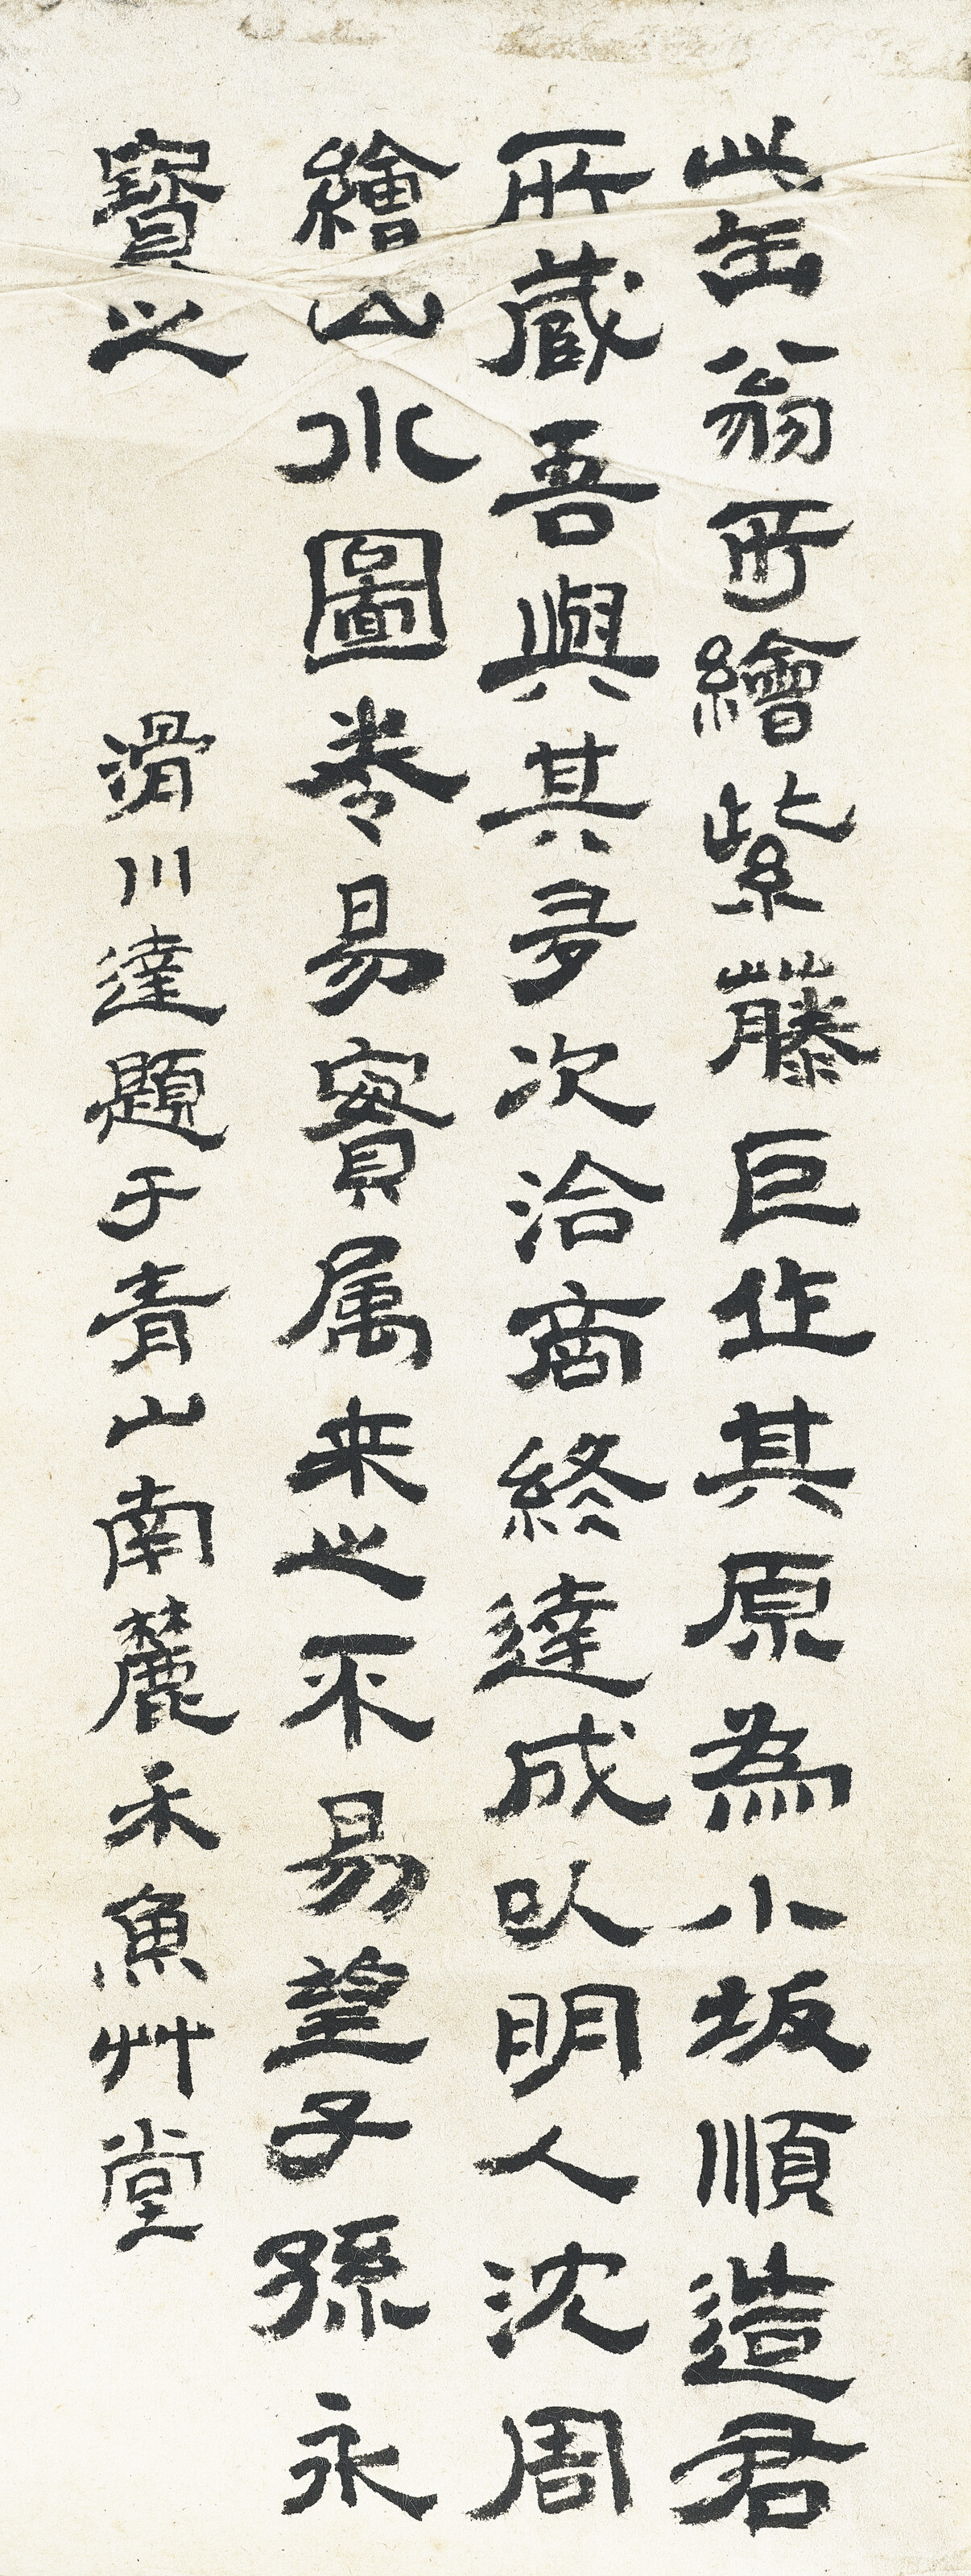 此缶翁所繪紫藤巨作其原為小坂順造君
所藏吾與其多次洽商終達成以明人沈周
繪山水圖卷易實属来之不易望子孫永
寶之
滑川達題于青山南麓禾魚艸堂